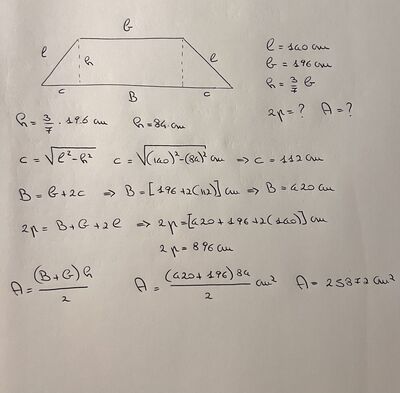 b
l h l
c B c
l = 140 cm
b = 196 cm
h = 3/7 b
2p = ? A = ?
h = 3/7 · 196 cm h = 84 cm
c = √(l² - h²) c = √((140)² - (84)²) cm ⇒ c = 112 cm
B = b + 2c ⇒ B = [196 + 2(112)] cm ⇒ B = 420 cm
2p = B + b + 2l ⇒ 2p = [420 + 196 + 2(140)] cm
2p = 896 cm
A = (B + b) h / 2 A = (420 + 196) 84 / 2 cm² A = 25872 cm²